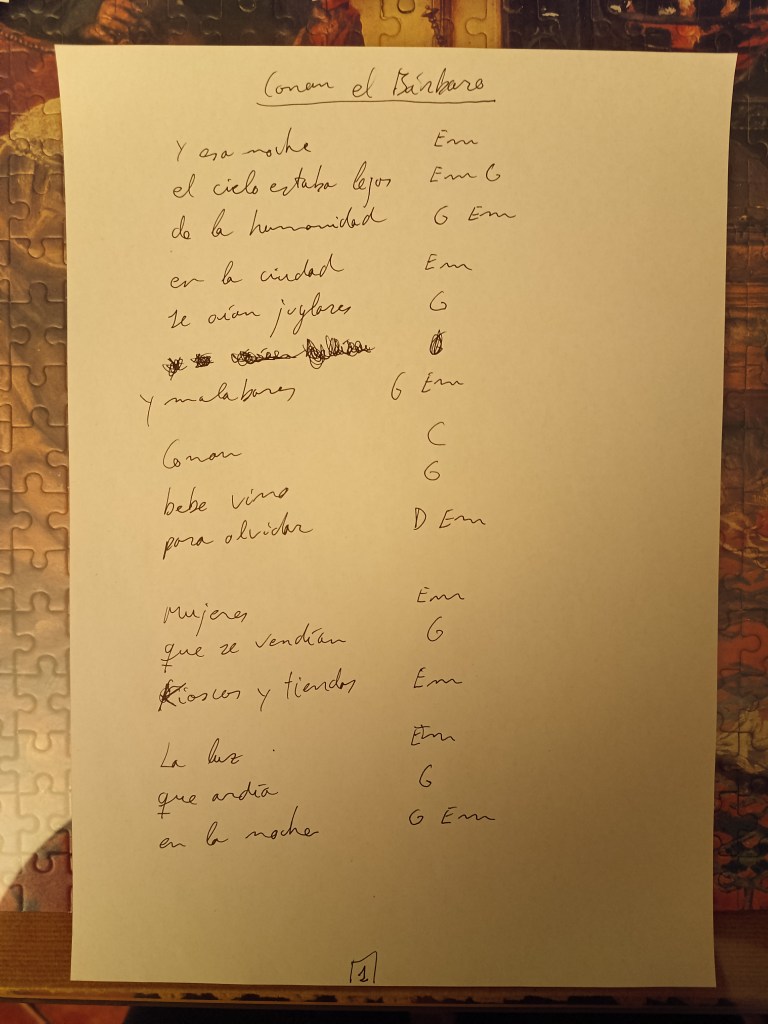 Conan el Bárbaro
Y esa noche Em
el cielo estaba lejos Em G
de la humanidad G Em
en la ciudad Em
se oían juglares G
Y malabares G Em
Conan C
bebe vino G
para olvidar D Em
Mujeres Em
que se vendían G
Kioscos y tiendas Em
La luz Em
que ardía G
en la noche G Em
1